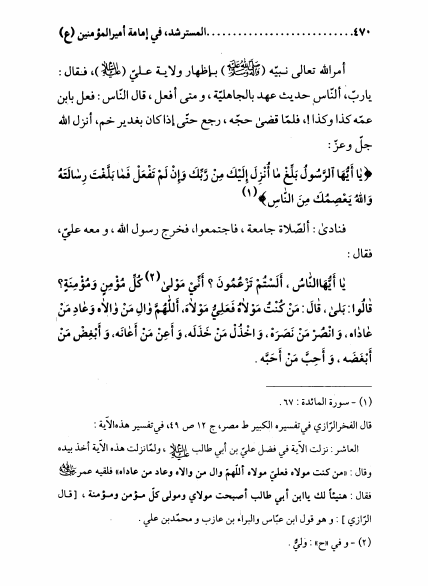 ٤٧٠............................المسترشد، في إمامة أميرالمؤمنين (ع)
أمرالله تعالى نبيّه (ﷺ) بإظهار ولاية عليّ (عليه السلام)، فقال :
ياربّ، ألنّاس حديث عهد بالجاهليّة ، و متى أفعل ، قال النّاس : فعل بابن
عمه كذا وكذا !، فلمّا قضىٰ حجّه ، رجع حتّى إذاكان بغدير خم، أنزل الله
جلّ وعزّ :
﴿يٰا أَيُّهَا ٱلرَّسُولُ بَلِّغْ مٰا أُنْزِلَ إِلَيْكَ مِنْ رَبِّكَ وَإِنْ لَمْ تَفْعَلْ فَمٰا بَلَّغْتَ رِسٰالَتَهُ
وَاللهُ يَعْصِمُكَ مِنَ النّٰاسِ﴾(١)
فنادىٰ : ألصّلاة جامعة ، فاجتمعوا، فخرج رسول الله ، و معه عليّ،
فقال :
يٰا أَيُّهَاالنّٰاسُ ، أَلَسْتُمْ تَزْعُمُونَ ؟ أَنّي مَوْلىٰ(٢) كُلِّ مُؤْمِنٍ وَمُؤْمِنَةٍ؟
قٰالُوا: بَلىٰ، قٰالَ: مَنْ كُنْتُ مَوْلاٰهُ فَعَلِيٌّ مَوْلاٰهُ، أَللّهُمَّ وٰالِ مَنْ وٰالاٰهُ وَعٰادِ مَنْ
عٰادٰاهُ، وَانْصُرْ مَنْ نَصَرَهُ، وَاخْذُلْ مَنْ خَذَلَه، وَ أَعِنْ مَنْ أَعٰانَه، وَ أَبْغِضْ مَنْ
أَبْغَضَه ، وَ أَحِبَّ مَنْ أَحَبَّه .
(١) - سورة المائدة : ٦٧.
قال الفخرالرّازي في تفسيره الكبير ط مصر، ج ١٢ ص ٤٩، في تفسير هذه الآية :
العاشر : نزلت الآية في فضل عليّ بن أبي طالب عليه السلام ، ولمّانزلت هذه الآية أخذ بيده
وقال : «من كنت مولاه فعليّ مولاه أللّهمّ وال من والاه وعاد من عاداه» فلقيه عمر
فقال : هنيئاً لك ياابن أبي طالب أصبحت مولاي ومولى كلّ مؤمن ومؤمنة ، [قال
الرّازي] : و هو قول ابن عبّاس والبراء بن عازب و محمّدبن علي .
(٢) - و في «ح» : وَلِيُّ .